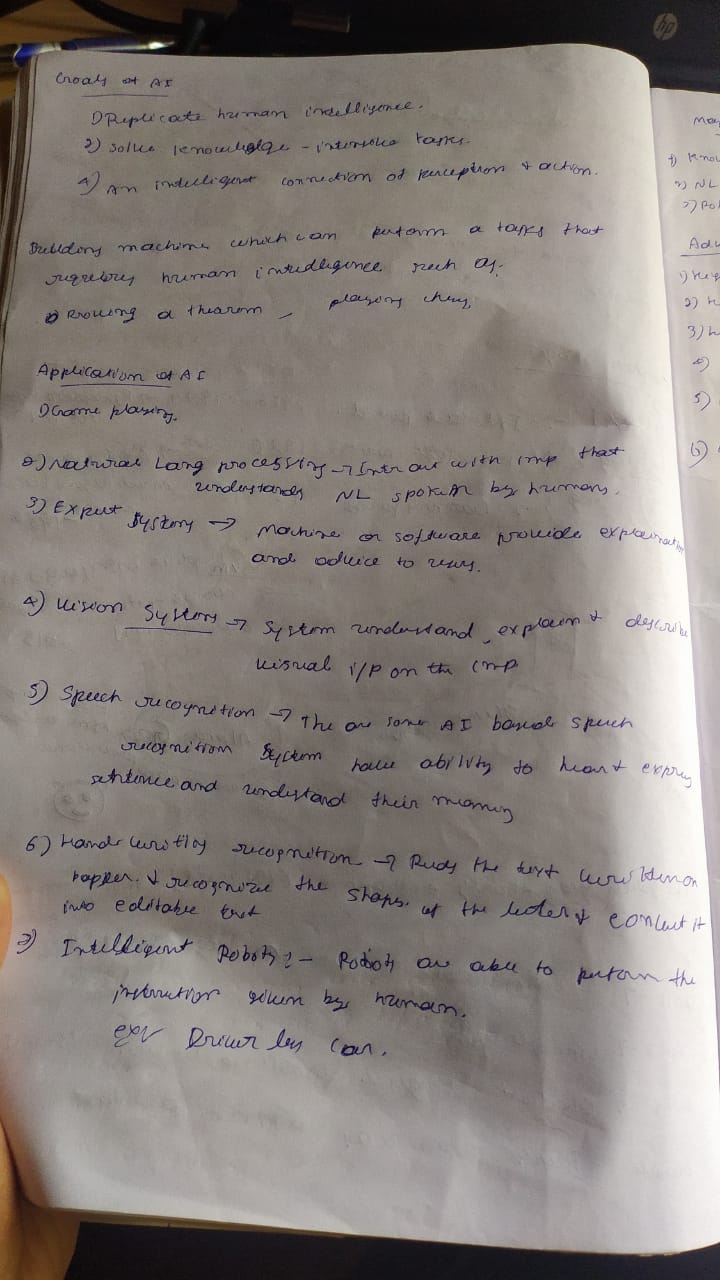 Goals of AI
1) Replicate human intelligence.
2) Solve knowledge - intensive tasks.
4) An intelligent connection of perception & action.
Building machine which can perform a tasks that
requires human intelligence such as:
Proving a thearom, playing chess,
Application of AI
1) Game playing.
2) Natural Lang processing → Intr act with cmp that
understands NL spoken by humans.
3) Expert System → Machine or software provide explaination
and advice to users.
4) Vision System → System understand, explain & describe
visual i/p on the cmp
5) Speech recognition → The are some AI based speech
recognition System have ability to hear & express
sentence and undestand their meaning
6) Hand writing recognition → Reads the text written on
papper. & recognize the shaps of the leters & convert it
into editable text
7) Intelligent Robots :- Robots are able to perform the
instruction given by human.
ex Driver less car.
hp
1) Know
2) NL
Adv
2) H
3)
4)
5)
6)